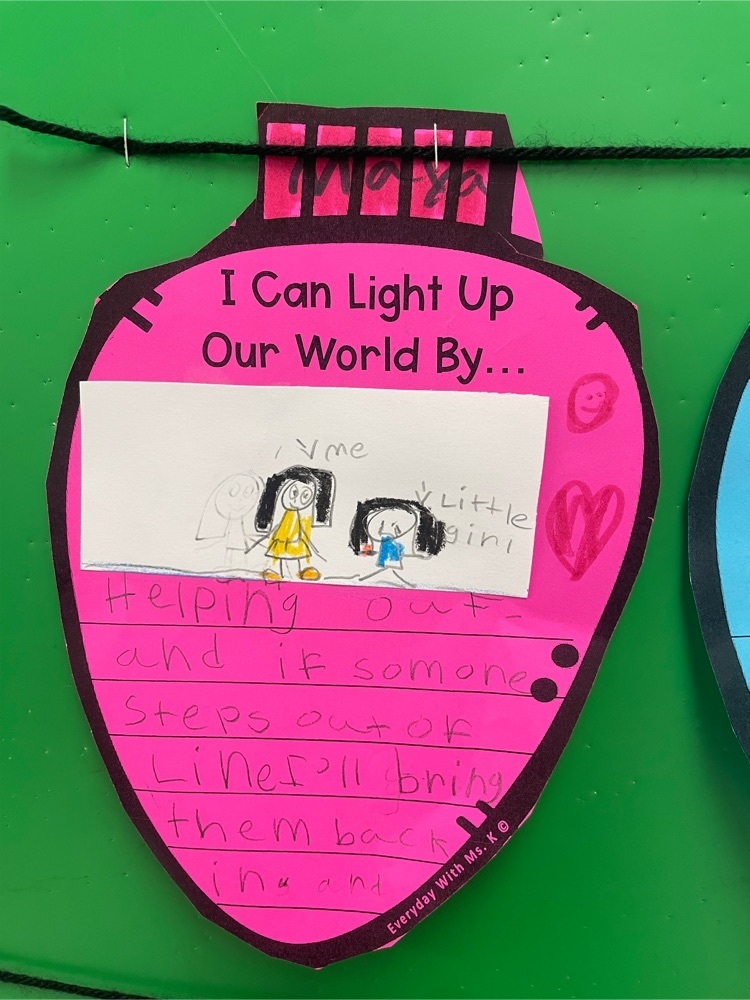 Maya
I Can Light Up
Our World By...
me
Little
girl
Helping out-
and if somone
steps out of
Line I'll bring
them back
in. and
Everyday With Ms. K ©